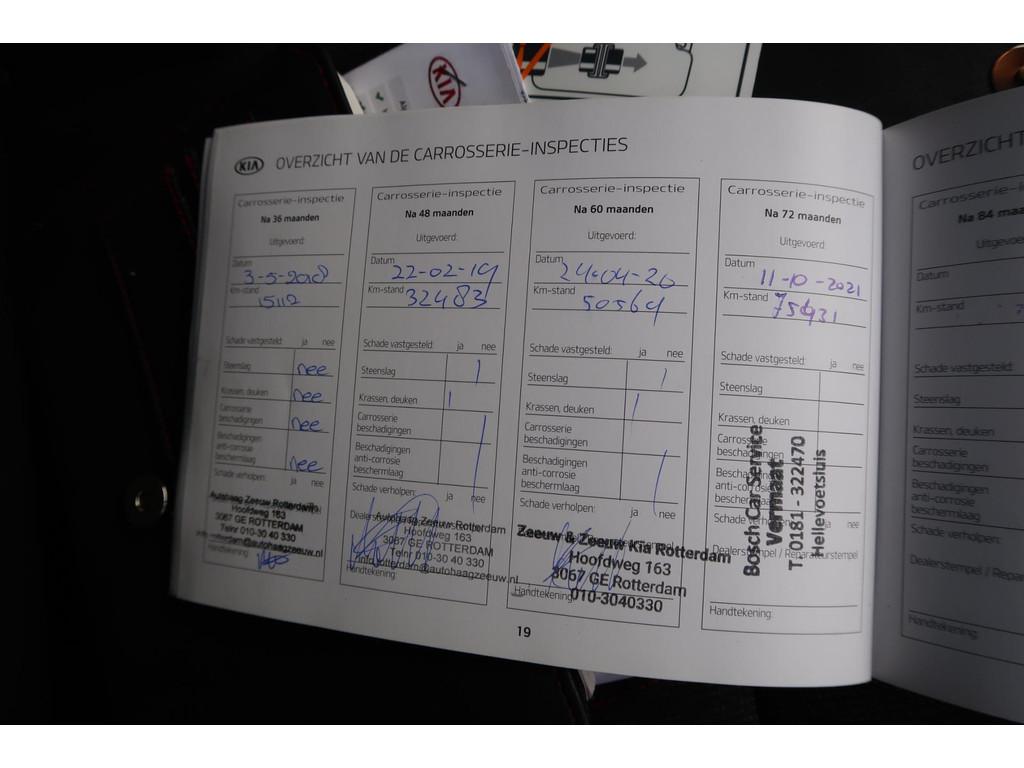 KIA
KIA OVERZICHT VAN DE CARROSSERIE-INSPECTIES
Carrosserie-inspectie
Na 36 maanden
Uitgevoerd:
Datum
3-5-2018
Km-stand
15112
Schade vastgesteld: ja nee
Steenslag nee
Krassen, deuken nee
Carrosserie
beschadigingen nee
Beschadigingen
anti-corrosie
beschermlaag nee
Schade verholpen: ja nee
Autohaag Zeeuw Rotterdam
Hoofdweg 163
3067 GE ROTTERDAM
Telnr 010-30 40 330
info.rotterdam@autohaagzeeuw.nl
Handtekening:
Carrosserie-inspectie
Na 48 maanden
Uitgevoerd:
Datum
22-02-19
Km-stand 32483
Schade vastgesteld: ja nee
Steenslag
Krassen, deuken
Carrosserie
beschadigingen
Beschadigingen
anti-corrosie
beschermlaag
Schade verholpen: ja nee
Autohaag Zeeuw Rotterdam
Hoofdweg 163
3067 GE ROTTERDAM
Telnr 010-30 40 330
info.rotterdam@autohaagzeeuw.nl
Handtekening:
Carrosserie-inspectie
Na 60 maanden
Uitgevoerd:
Datum
24-04-20
Km-stand
50564
Schade vastgesteld: ja nee
Steenslag
Krassen, deuken
Carrosserie
beschadigingen
Beschadigingen
anti-corrosie
beschermlaag
Schade verholpen: ja nee
Zeeuw & Zeeuw Kia Rotterdam
Hoofdweg 163
3067 GE Rotterdam
010-3040330
Handtekening:
Carrosserie-inspectie
Na 72 maanden
Uitgevoerd:
Datum
11-10-2021
Km-stand
Schade vastgesteld: ja nee
Steenslag
Krassen, deuken
Carrosserie
beschadigingen
Beschadigingen
anti-corrosie
beschermlaag
Schade verholpen: ja nee
Dealerstempel / Reparateurstempel
Bosch Car Service
Vermaat
T. 0181 - 322470
Hellevoetsluis
Handtekening:
19
OVERZICHT
Carrosserie-inspectie
Na 84 maa
Uitgevoerd
Datum
Km-stand
Schade vastgesteld:
Steenslag
Krassen, deuken
Carrosserie
beschadigingen
Beschadigingen
anti-corrosie
beschermlaag
Schade verholpen:
Dealerstempel / Repar
Handtekening: